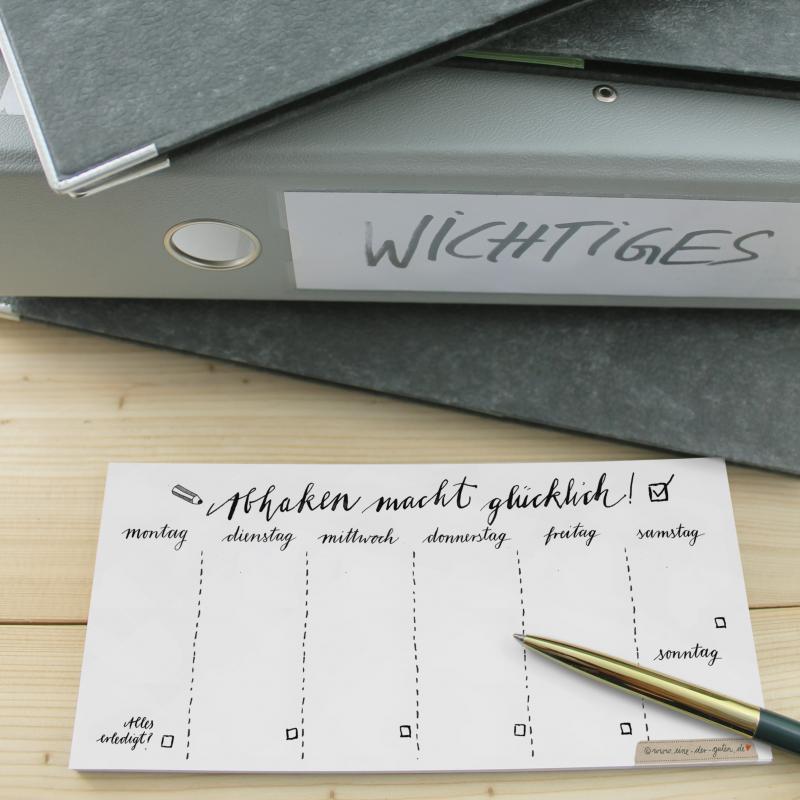 WICHTIGES
Abhaken macht glücklich!
montag dienstag mittwoch donnerstag freitag samstag
sonntag
Alles
erledigt?
©www.eine-der-guten.de